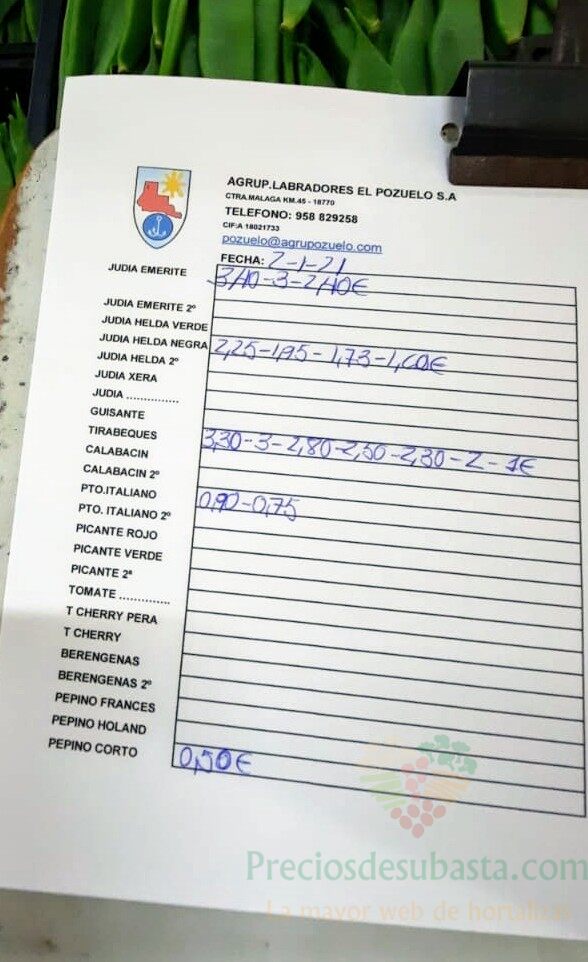 AGRUP.LABRADORES EL POZUELO S.A
CTRA.MALAGA KM.45 - 18770
TELEFONO: 958 829258
CIF:A 18021733
pozuelo@agrupozuelo.com
FECHA: 2-1-21
JUDIA EMERITE 3,40-3-2,40€
JUDIA EMERITE 2º
JUDIA HELDA VERDE
JUDIA HELDA NEGRA 2,25-1,95-1,73-1,60€
JUDIA HELDA 2º
JUDIA XERA
JUDIA ...............
GUISANTE
TIRABEQUES 3,30-3-2,80-2,50-2,30-2-1€
CALABACIN
CALABACIN 2º
PTO.ITALIANO 0,90-0,75
PTO. ITALIANO 2º
PICANTE ROJO
PICANTE VERDE
PICANTE 2ª
TOMATE ...............
T CHERRY PERA
T CHERRY
BERENGENAS
BERENGENAS 2º
PEPINO FRANCES
PEPINO HOLAND
PEPINO CORTO 0,50€
Preciosdesubasta.com
La mayor web de hortalizas